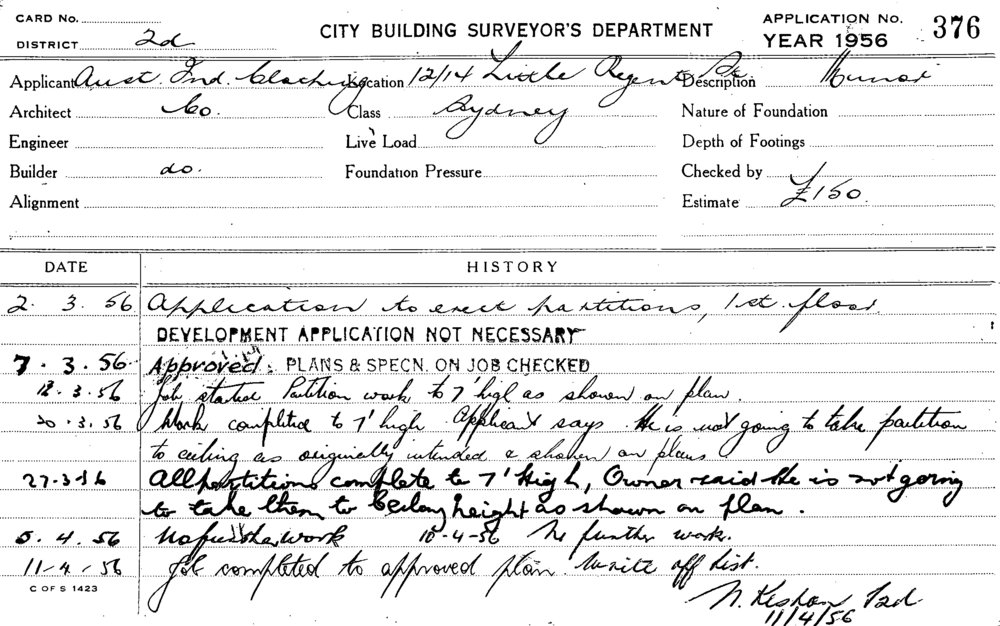 CARD No.
DISTRICT 2d
CITY BUILDING SURVEYOR'S DEPARTMENT
APPLICATION No. 376
YEAR 1956
Applicant Aust. Ind. Clothing Location 12/14 Little Regent St. Description Minor
Architect Co. Class Sydney Nature of Foundation
Engineer Live Load Depth of Footings
Builder do. Foundation Pressure Checked by
Alignment Estimate £150.
DATE HISTORY
2. 3. 56 Application to erect partitions, 1st. floor.
DEVELOPMENT APPLICATION NOT NECESSARY
7. 3. 56 Approved. PLANS & SPECN. ON JOB CHECKED
12.3.56 Job started Partition work to 7' high as shown on plan.
20.3.56 Work completed to 7' high Applicant says He is not going to take partition
to ceiling as originally intended & shown on plans
27-3-56 All partitions complete to 7' high, Owner said he is not going
to take them to height as shown on plan.
5. 4. 56 No further work 10-4-56 No further work.
11-4-56 Job completed to approved plan. Write off list.
C OF S 1423
11/4/56